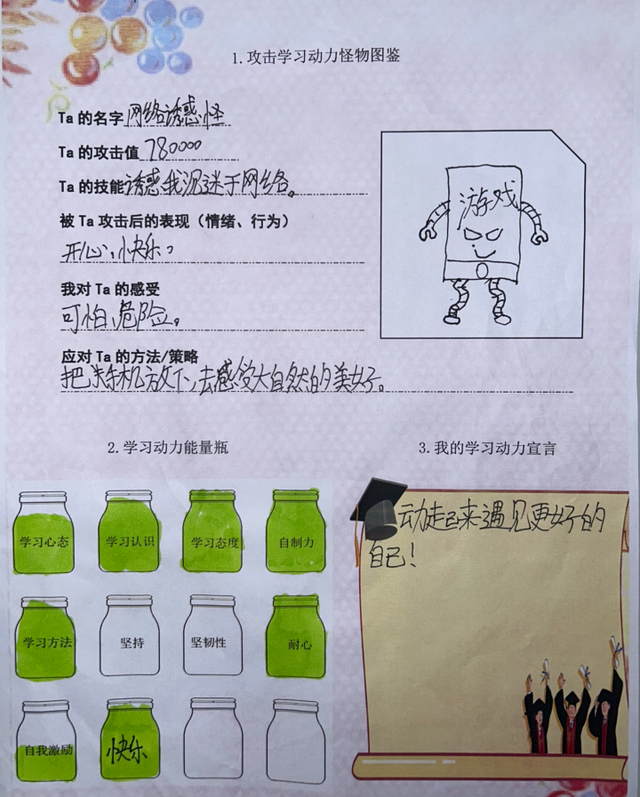 1.攻击学习动力怪物图鉴
Ta 的名字 网络诱惑怪
Ta 的攻击值 780000
Ta 的技能 诱惑我沉迷于网络。
被 Ta 攻击后的表现（情绪、行为）
开心、快乐
我对 Ta 的感受
可怕、危险。
应对 Ta 的方法/策略
把手机放下,去感受大自然的美好。
游戏
2.学习动力能量瓶
学习心态 学习认识 学习态度 自制力
学习方法 坚持 坚韧性 耐心
自我激励 快乐
3.我的学习动力宣言
动走起来遇见更好的
自己!